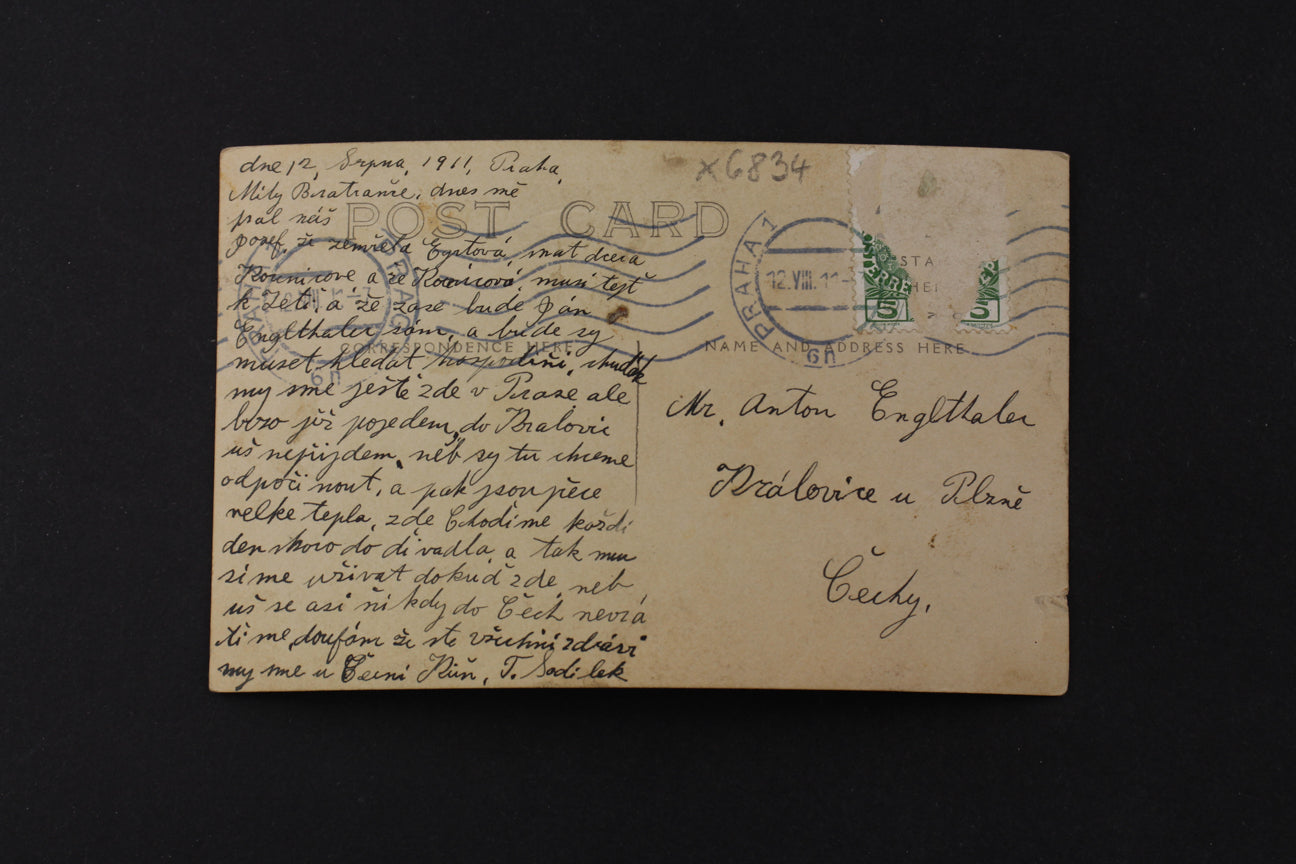 dne 12, Srpna, 1911, Praha,
Milý Bratranře, dnes mě
psal náš
Josef, že zemřela Egrtová, mat dcera
Kornicove a že Kornicová, musi tejt
k Zeťi, a že zase bude Ján
Englthaler sám, a bude sy
muset hledat hospodiňi, chudák
my sme ješťe zde v Praze ale
brzo již pojedem, do Kralovic
uš nepřijdem, neb sy tu chceme
odpoči nout, a pak jsou přece
velke tepla, zde Chodíme každi
den skoro do divadla, a tak mu
síme užívat dokuď zde, neb
uš se asi ňikdy do Čech nevrá
ťi me, doufám že ste všichni zdrávi
my sme u Černi Kůň, T. Sedilek
x6834
POST CARD
CORRESPONDENCE HERE
NAME AND ADDRESS HERE
PRAHA 1
12.VIII.11
6n
PRAHA
PRAG
6n
STA
HE
5
5
Mr. Anton Englthaler
Královice u Plzně
Čechy.